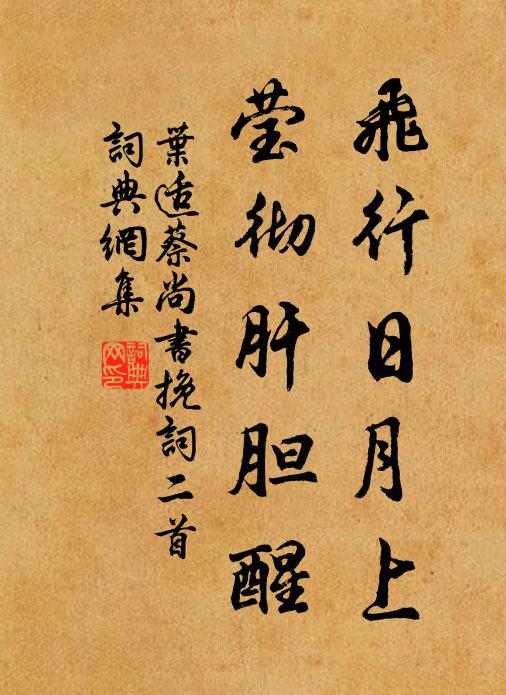 飛行日月上
莹彻肝胆醒
葉適蔡尚書挽詞二首
詞典網集
詞典網印